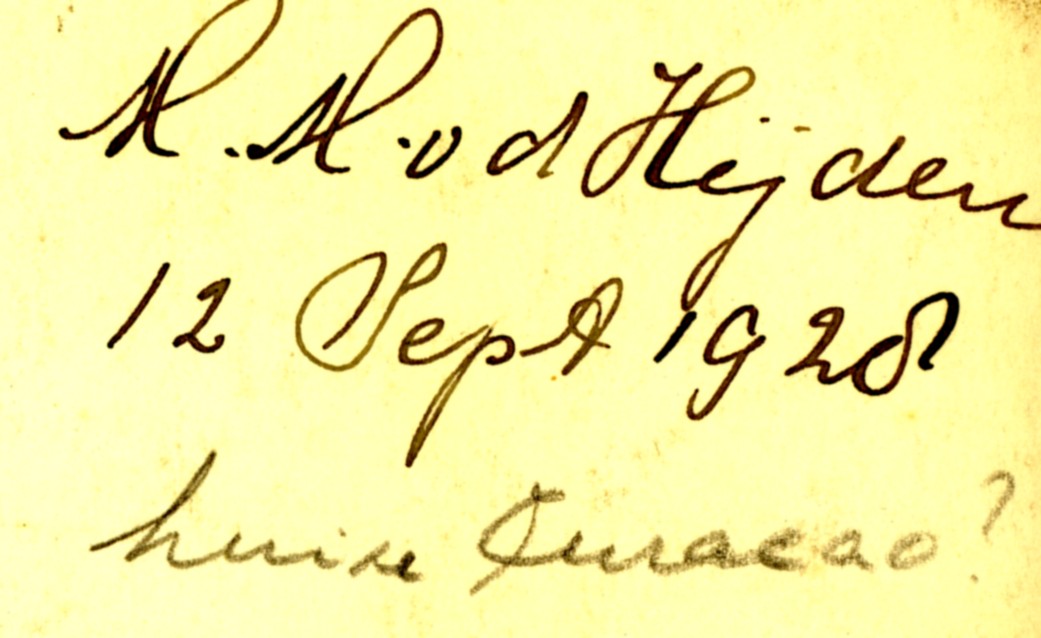 M. M. v d Heijden
12 Sept 1928
huize Curacao?